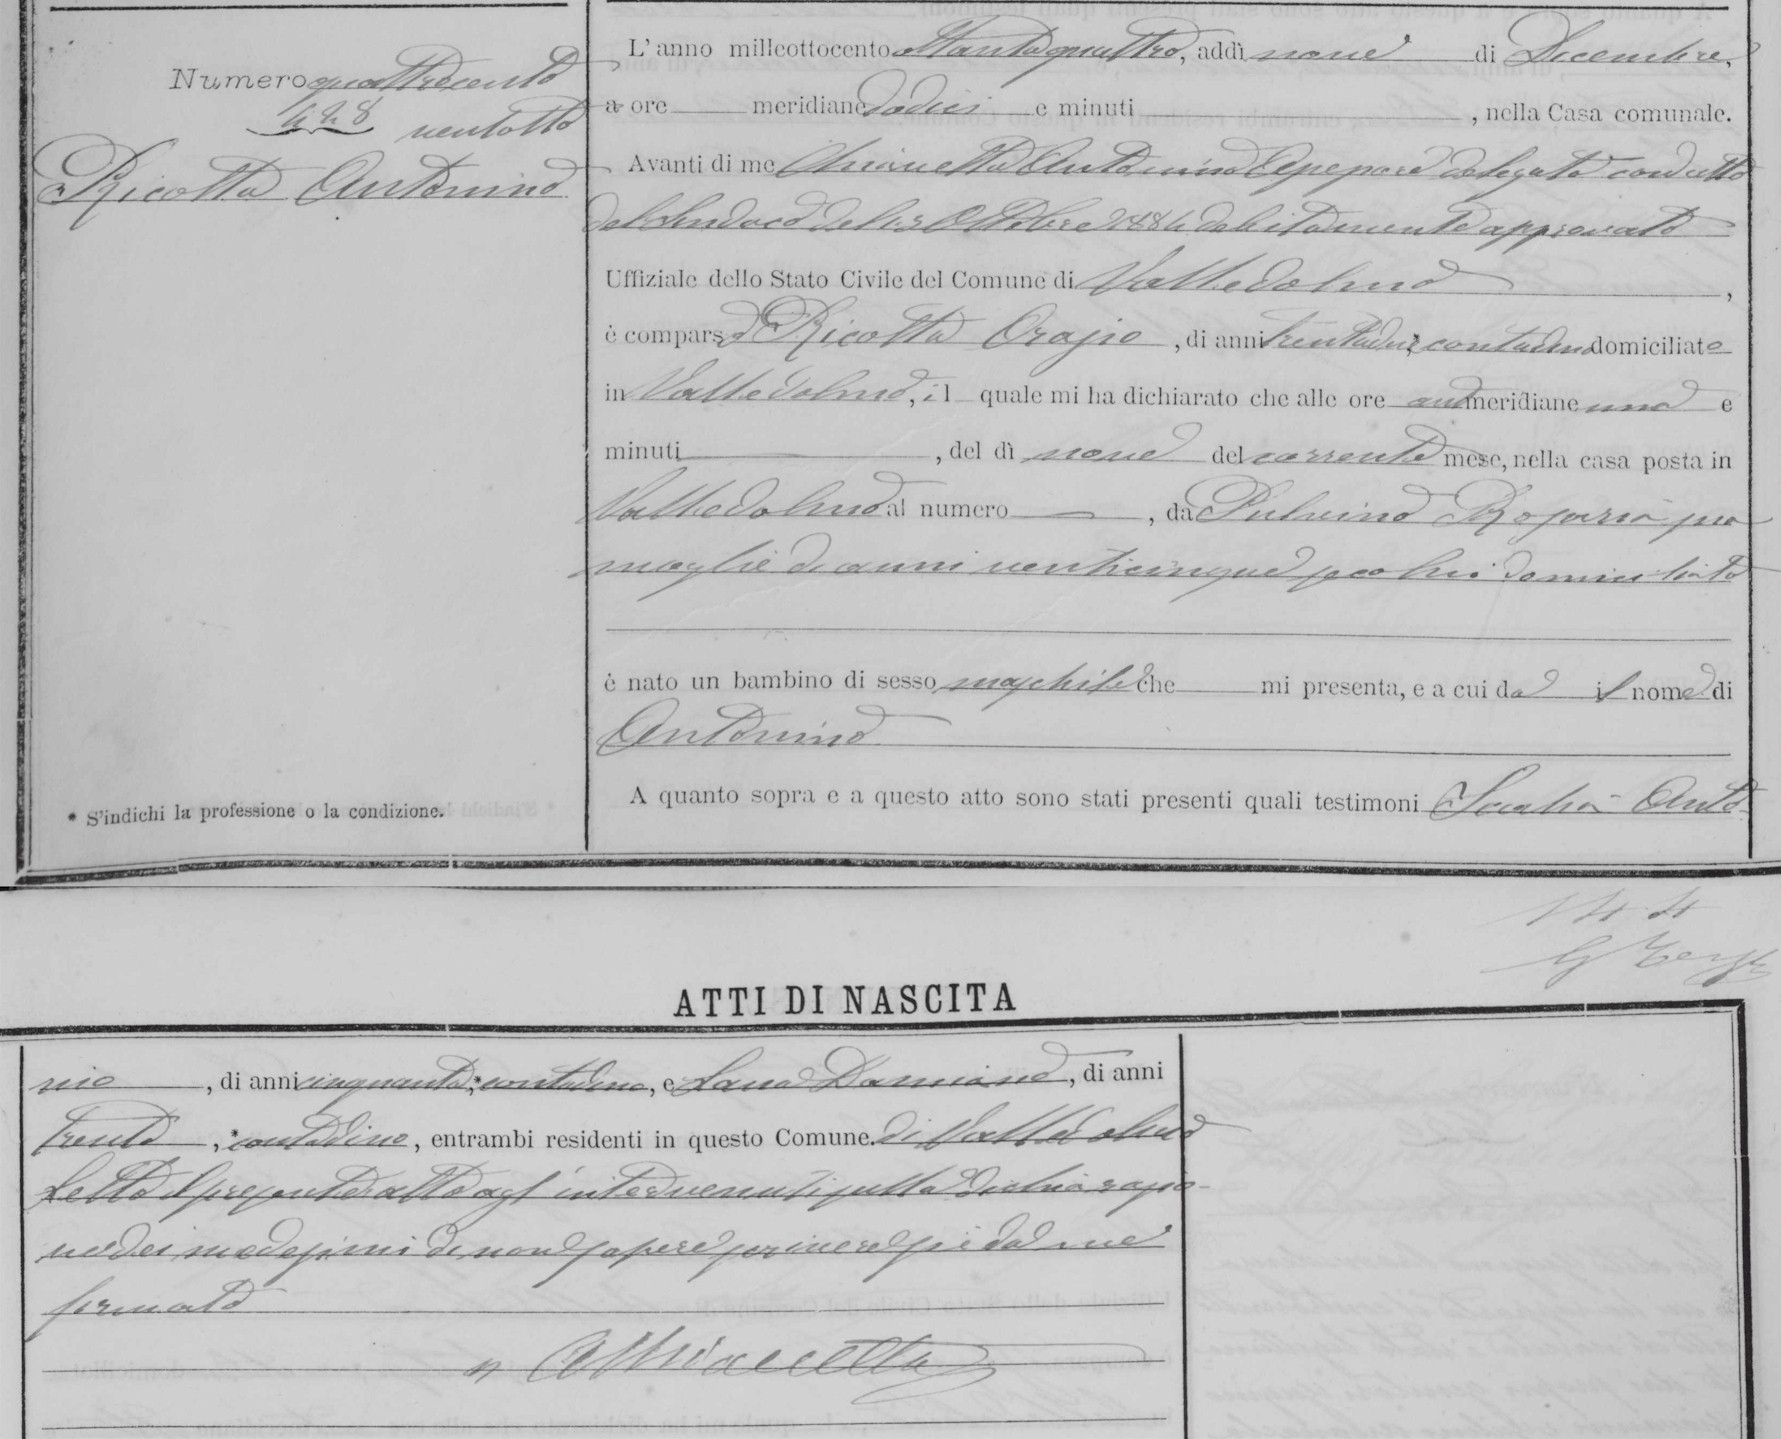 Numero quattrocento
428 ventotto
Ricotta Antonino
L'anno milleottocento ottantaquattro, addì nove di Dicembre,
a ore meridiane dodici e minuti , nella Casa comunale.
Avanti di me Antonino Assessore delegato con atto
del Sindaco del 13 Ottobre 1884 debitamente approvato
Uffiziale dello Stato Civile del Comune di Valledolmo ,
è comparso Ricotta Orazio , di anni trentadue, contadino domiciliato
in Valledolmo, il quale mi ha dichiarato che alle ore antimeridiane una e
minuti , del dì nove del corrente mese, nella casa posta in
Valledolmo al numero , da Pulvino Rosaria sua
moglie di anni venticinque seco lui domiciliata
è nato un bambino di sesso maschile che mi presenta, e a cui da il nome di
Antonino
A quanto sopra e a questo atto sono stati presenti quali testimoni Scalia Anto-
* S'indichi la professione o la condizione.
144
ATTI DI NASCITA
nio , di anni cinquanta, contadino, e Lana Damiano, di anni
trenta , *contadino, entrambi residenti in questo Comune. di Valledolmo
Letto il presente atto agl'intervenuti sulla dichiarazio-
ne dei medesimi di non sapere scrivere si è da me
firmato